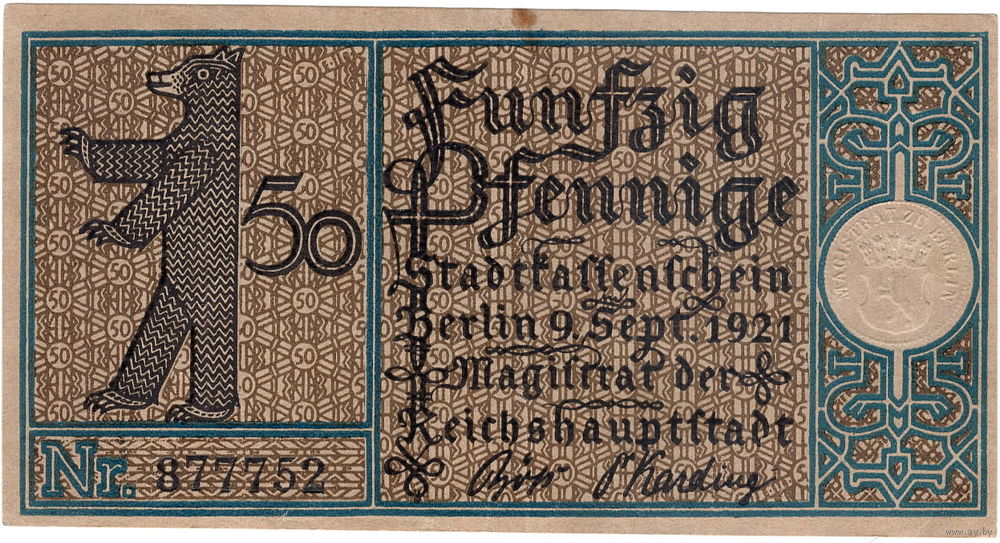 50
Funfzig
Pfennige
Stadtkaſſenſchein
Berlin 9. Sept. 1921
Magiſtrat der
Reichshauptſtadt
Böss Karding
Nr. 877752
MAGISTRAT ZU BERLIN
www.ay.by